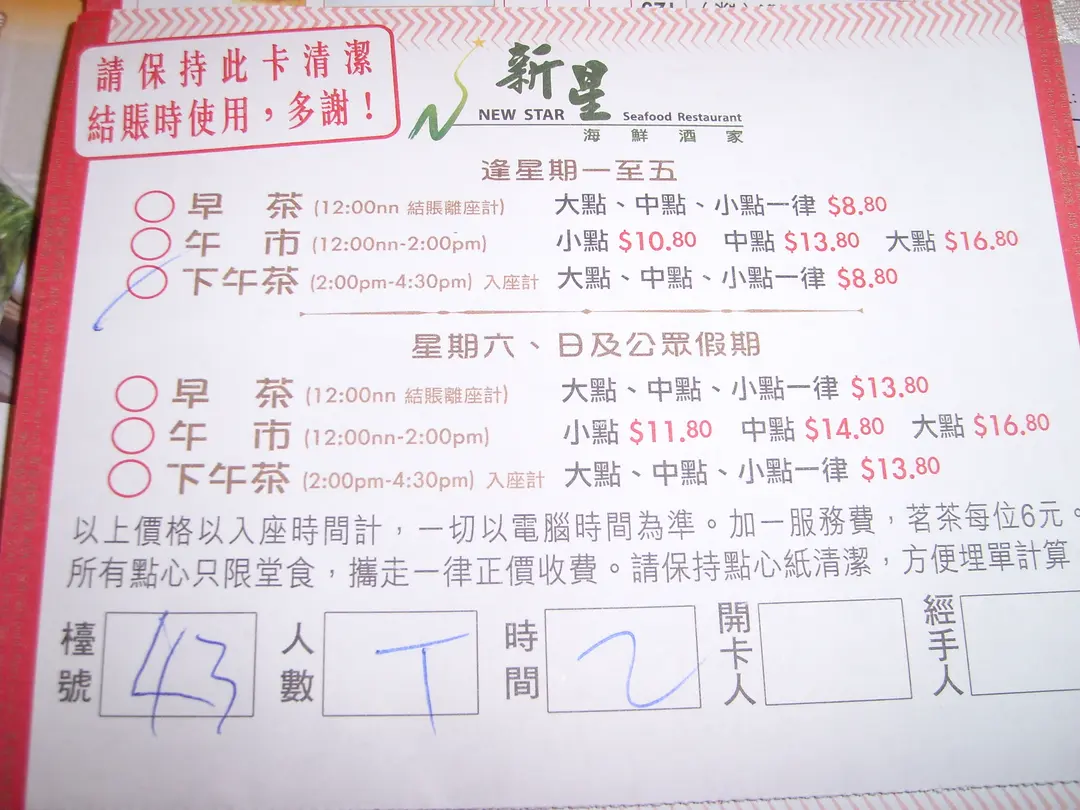 請保持此卡清潔
結賬時使用，多謝！
新星
NEW STAR Seafood Restaurant
海鮮酒家
逢星期一至五
早茶 (12:00nn 結賬離座計) 大點、中點、小點一律 $8.80
午市 (12:00nn-2:00pm) 小點 $10.80 中點 $13.80 大點 $16.80
下午茶 (2:00pm-4:30pm) 入座計 大點、中點、小點一律 $8.80
星期六、日及公眾假期
早茶 (12:00nn 結賬離座計) 大點、中點、小點一律 $13.80
午市 (12:00nn-2:00pm) 小點 $11.80 中點 $14.80 大點 $16.80
下午茶 (2:00pm-4:30pm) 入座計 大點、中點、小點一律 $13.80
以上價格以入座時間計，一切以電腦時間為準。加一服務費，茗茶每位6元。
所有點心只限堂食，攜走一律正價收費。請保持點心紙清潔，方便埋單計算
檯號 43 人數 T 時間 2 開卡人 經手人